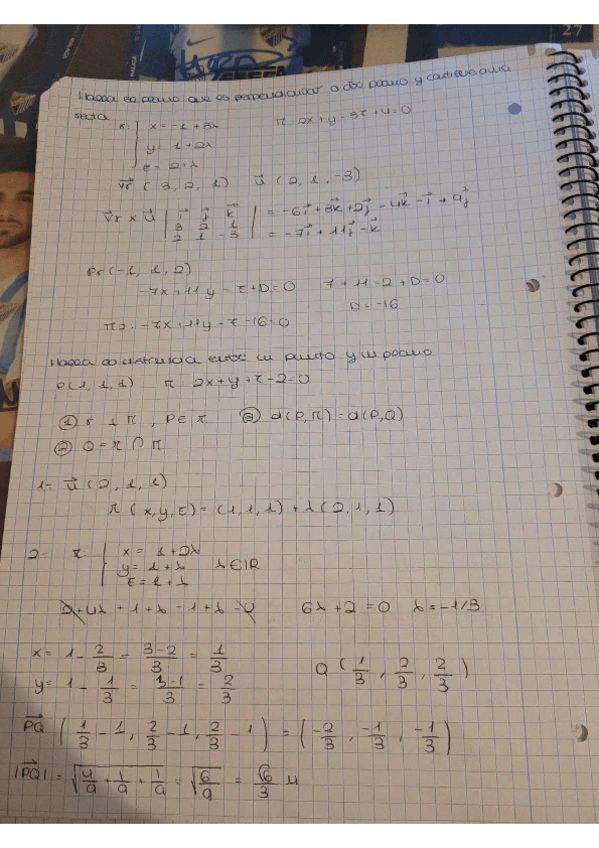 27
Haŋa eo plano que es perpendicular a otro plano y contiene a una
recta
r: { x = -1 + 3λ
y = 1 + 2λ
z = 2 + λ
π 2x + y - 3z + 4 = 0
v⃗r (3, 2, 1) u⃗ (2, 1, -3)
v⃗r x u⃗ | i⃗ j⃗ k⃗ | = -6i⃗ + 3k⃗ + 2j⃗ - 4k⃗ - i⃗ + 9j⃗
3 2 1
2 1 -3 | = -7i⃗ + 11j⃗ - k⃗
Pr (-1, 1, 2)
-7x + 11y - z + D = 0 7 + 11 - 2 + D = 0
D = -16
π2: -7x + 11y - z - 16 = 0
distancia entre un punto y un plano
P(1, 1, 1) π 2x + y + z - 2 = 0
① r ⊥ π, P ∈ r ③ d(P, π) = d(P, Q)
② Q = r ∩ π
1- u⃗ (2, 1, 1)
r (x, y, z) = (1, 1, 1) + λ(2, 1, 1)
2- r: { x = 1 + 2λ
y = 1 + λ λ ∈ IR
z = 1 + λ
2 + 4λ + 1 + λ - 1 + λ - 4 6λ + 2 = 0 λ = -1/3
x = 1 - 2/3 = 3-2/3 = 1/3
Q (1/3, 2/3, 2/3)
y = 1 - 1/3 = 3-1/3 = 2/3
P⃗Q (1/3 - 1, 2/3 - 1, 2/3 - 1) = (-2/3, -1/3, -1/3)
|P⃗Q| = √4/9 + 1/9 + 1/9 = √6/9 = √6/3 u